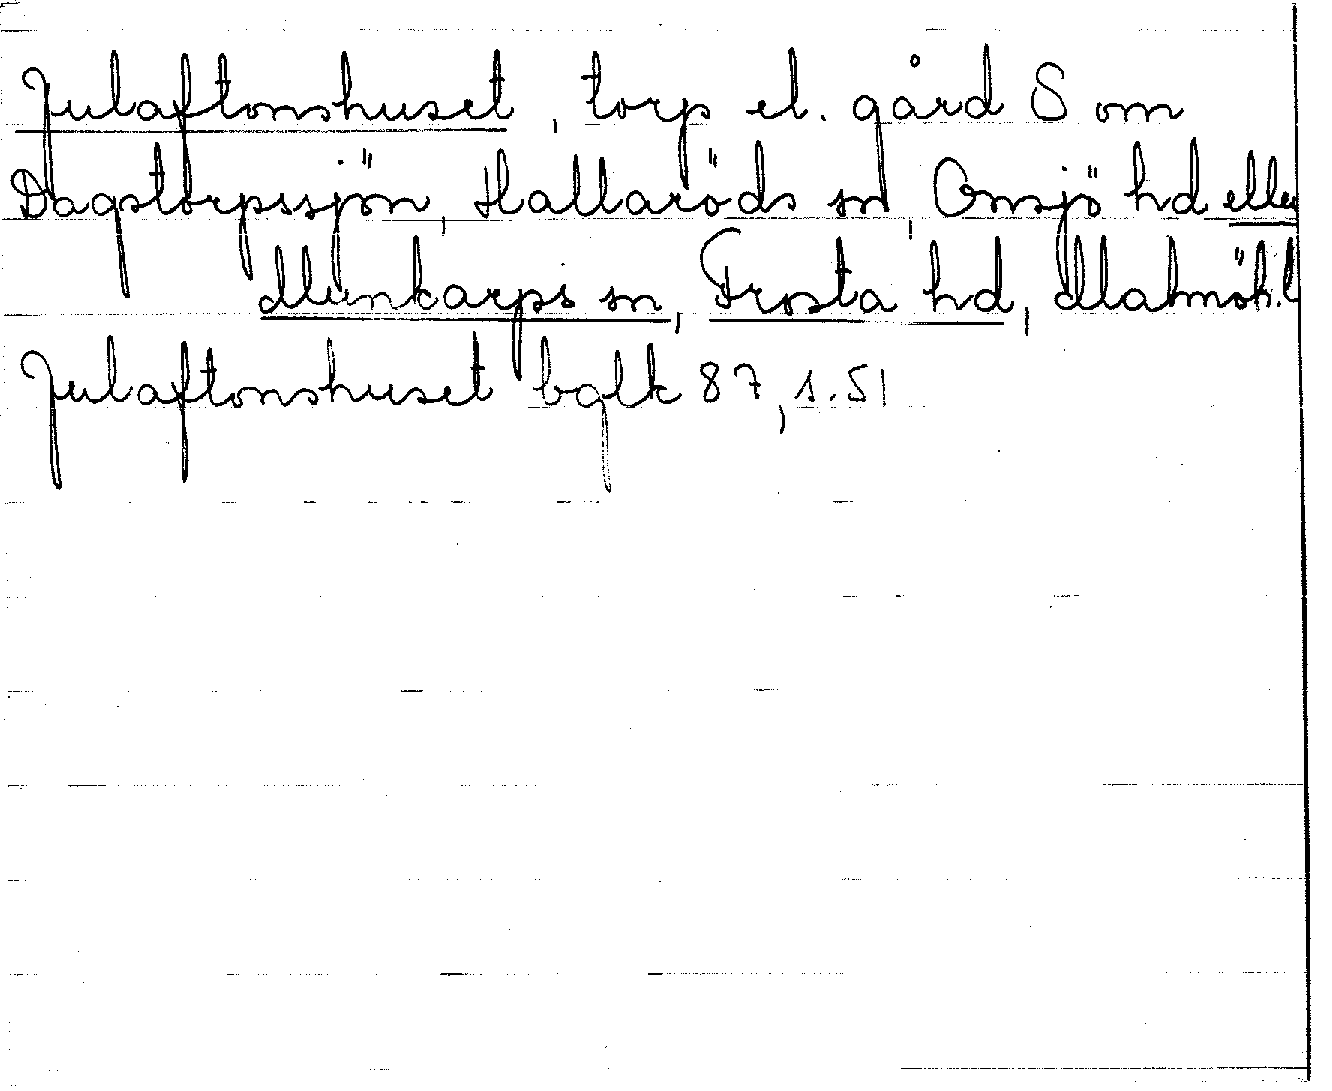 Julaftonshuset, torp el. gård S om
Dagstorpssjön, Hallaröds sn, Onsjö hd eller
Munkarps sn, Frosta hd, Malmöh. l
Julaftonshuset bglk 87, 1.51